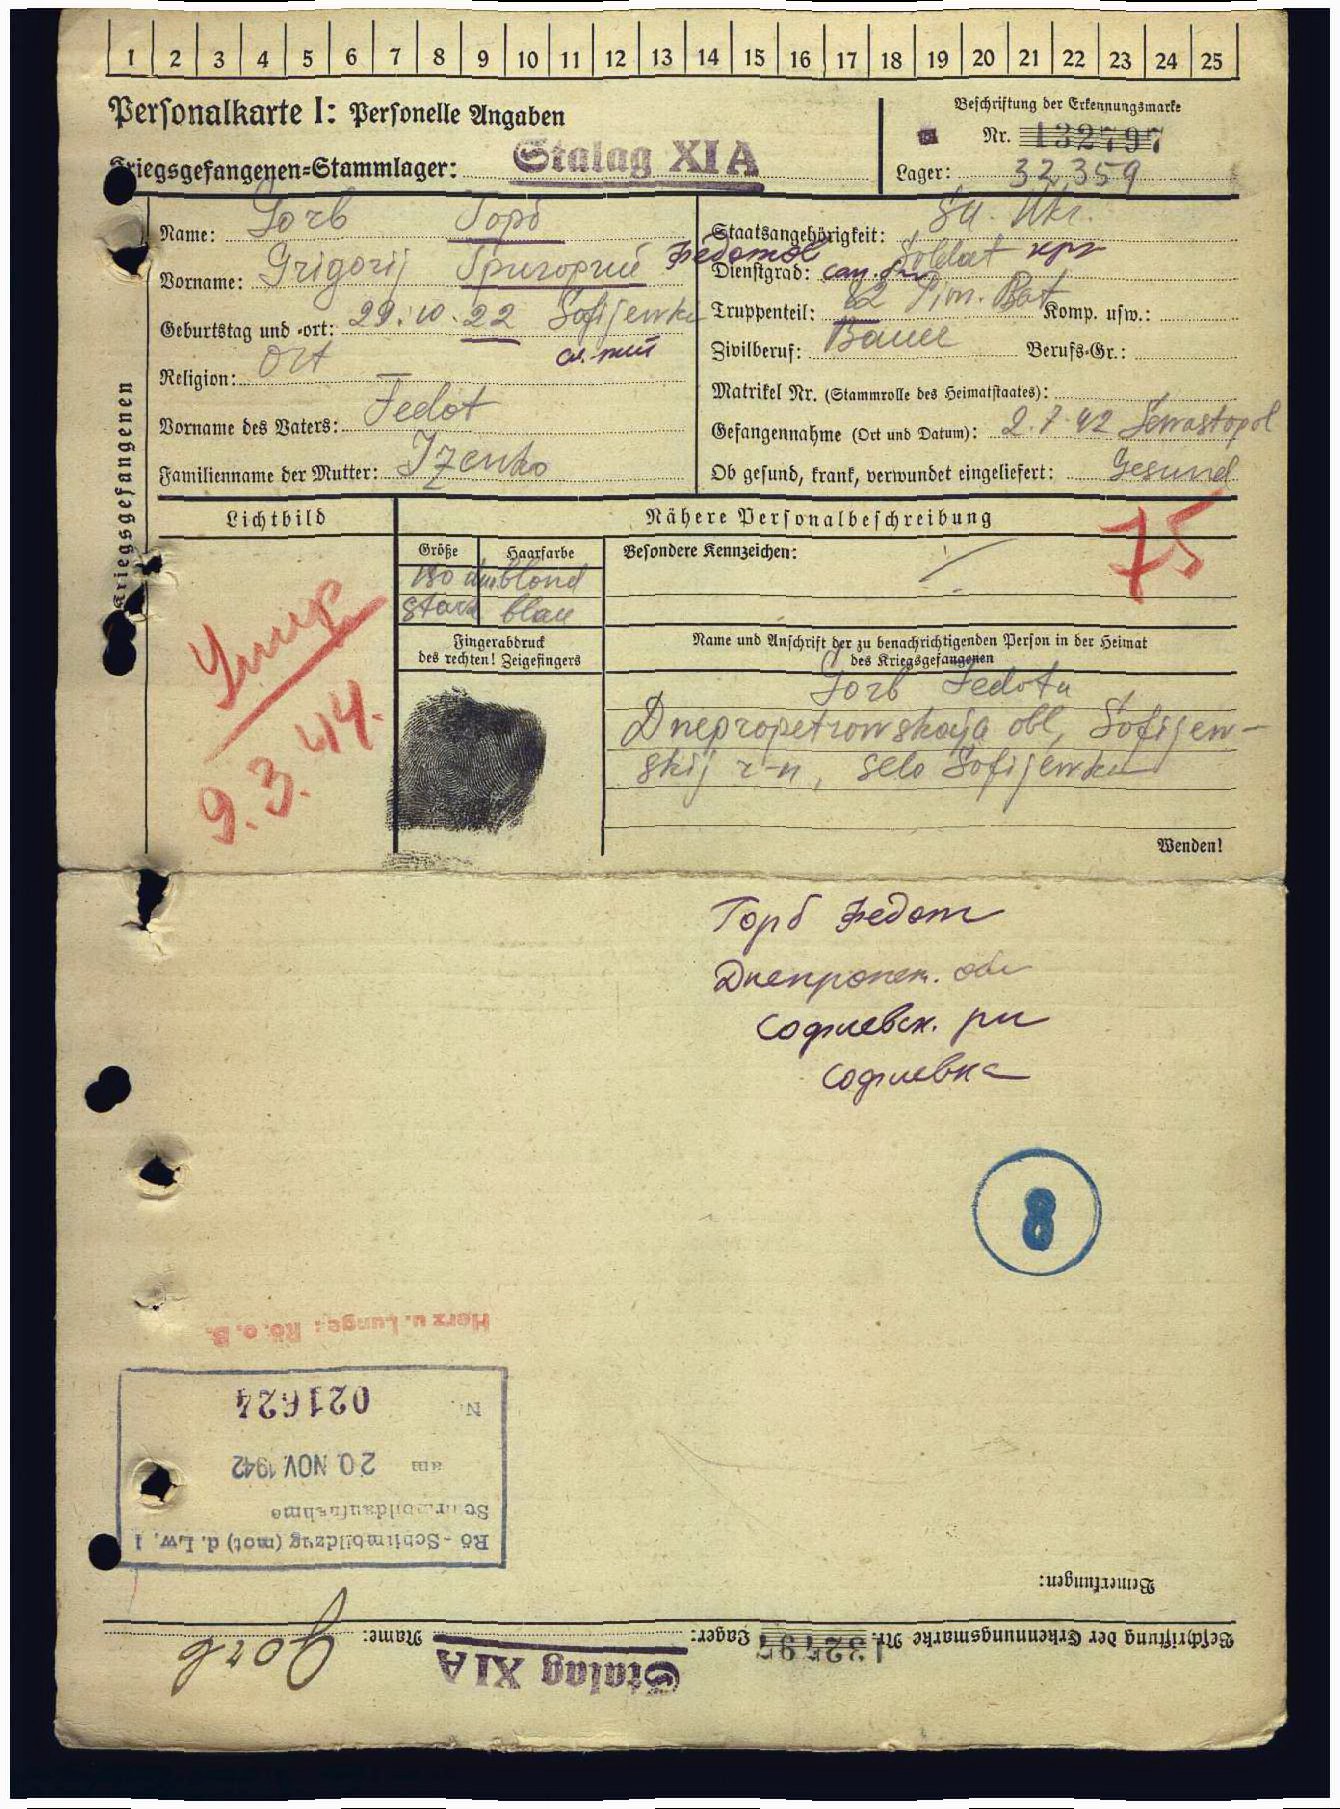 1 2 3 4 5 6 7 8 9 10 11 12 13 14 15 16 17 18 19 20 21 22 23 24 25
Personalkarte I: Personelle Angaben
Kriegsgefangenen-Stammlager: Stalag XI A
Beschriftung der Erkennungsmarke
Nr. 132797
Lager: 32359
Name: Gorb Горб
Vorname: Grigorij Григорий Федотов
Geburtstag und -ort: 29.10.22 Sofijewka
Religion: Ort
Vorname des Vaters: Fedot
Familienname der Mutter: Izenko
Staatsangehörigkeit: Su. Ukr.
Dienstgrad: Soldat кр
Truppenteil: 82 Pion. Bat Komp. usw.:
Zivilberuf: Bauer Berufs-Gr.:
Matrikel Nr. (Stammrolle des Heimatstaates):
Gefangennahme (Ort und Datum): 2.7.42 Sewastopol
Ob gesund, krank, verwundet eingeliefert: Gesund
Kriegsgefangenen
Lichtbild
Nähere Personalbeschreibung
75
Größe Haarfarbe Besondere Kennzeichen:
180 dunblond
stark blau
Fingerabdruck
des rechten! Zeigefingers
Name und Anschrift der zu benachrichtigenden Person in der Heimat
des Kriegsgefangenen
Gorb Fedota
Dnepropetrowskaja obl, Sofijew-
skij r-n, selo Sofijewka
Умер
9.3.44.
Wenden!
Горб Федот
Днепропет. обл
Софиевск. рн
Софиевка
8
Herz u. Lunge: Rö. o. B.
Nr. 021624
am 20. NOV. 1942
Schirmbildaufnahme
Rö-Schirmbildzug (mot) d. Lw. 1
Bemerkungen:
Beschriftung der Erkennungsmarke Nr. 132797 Lager: Stalag XI A Name: Gorb